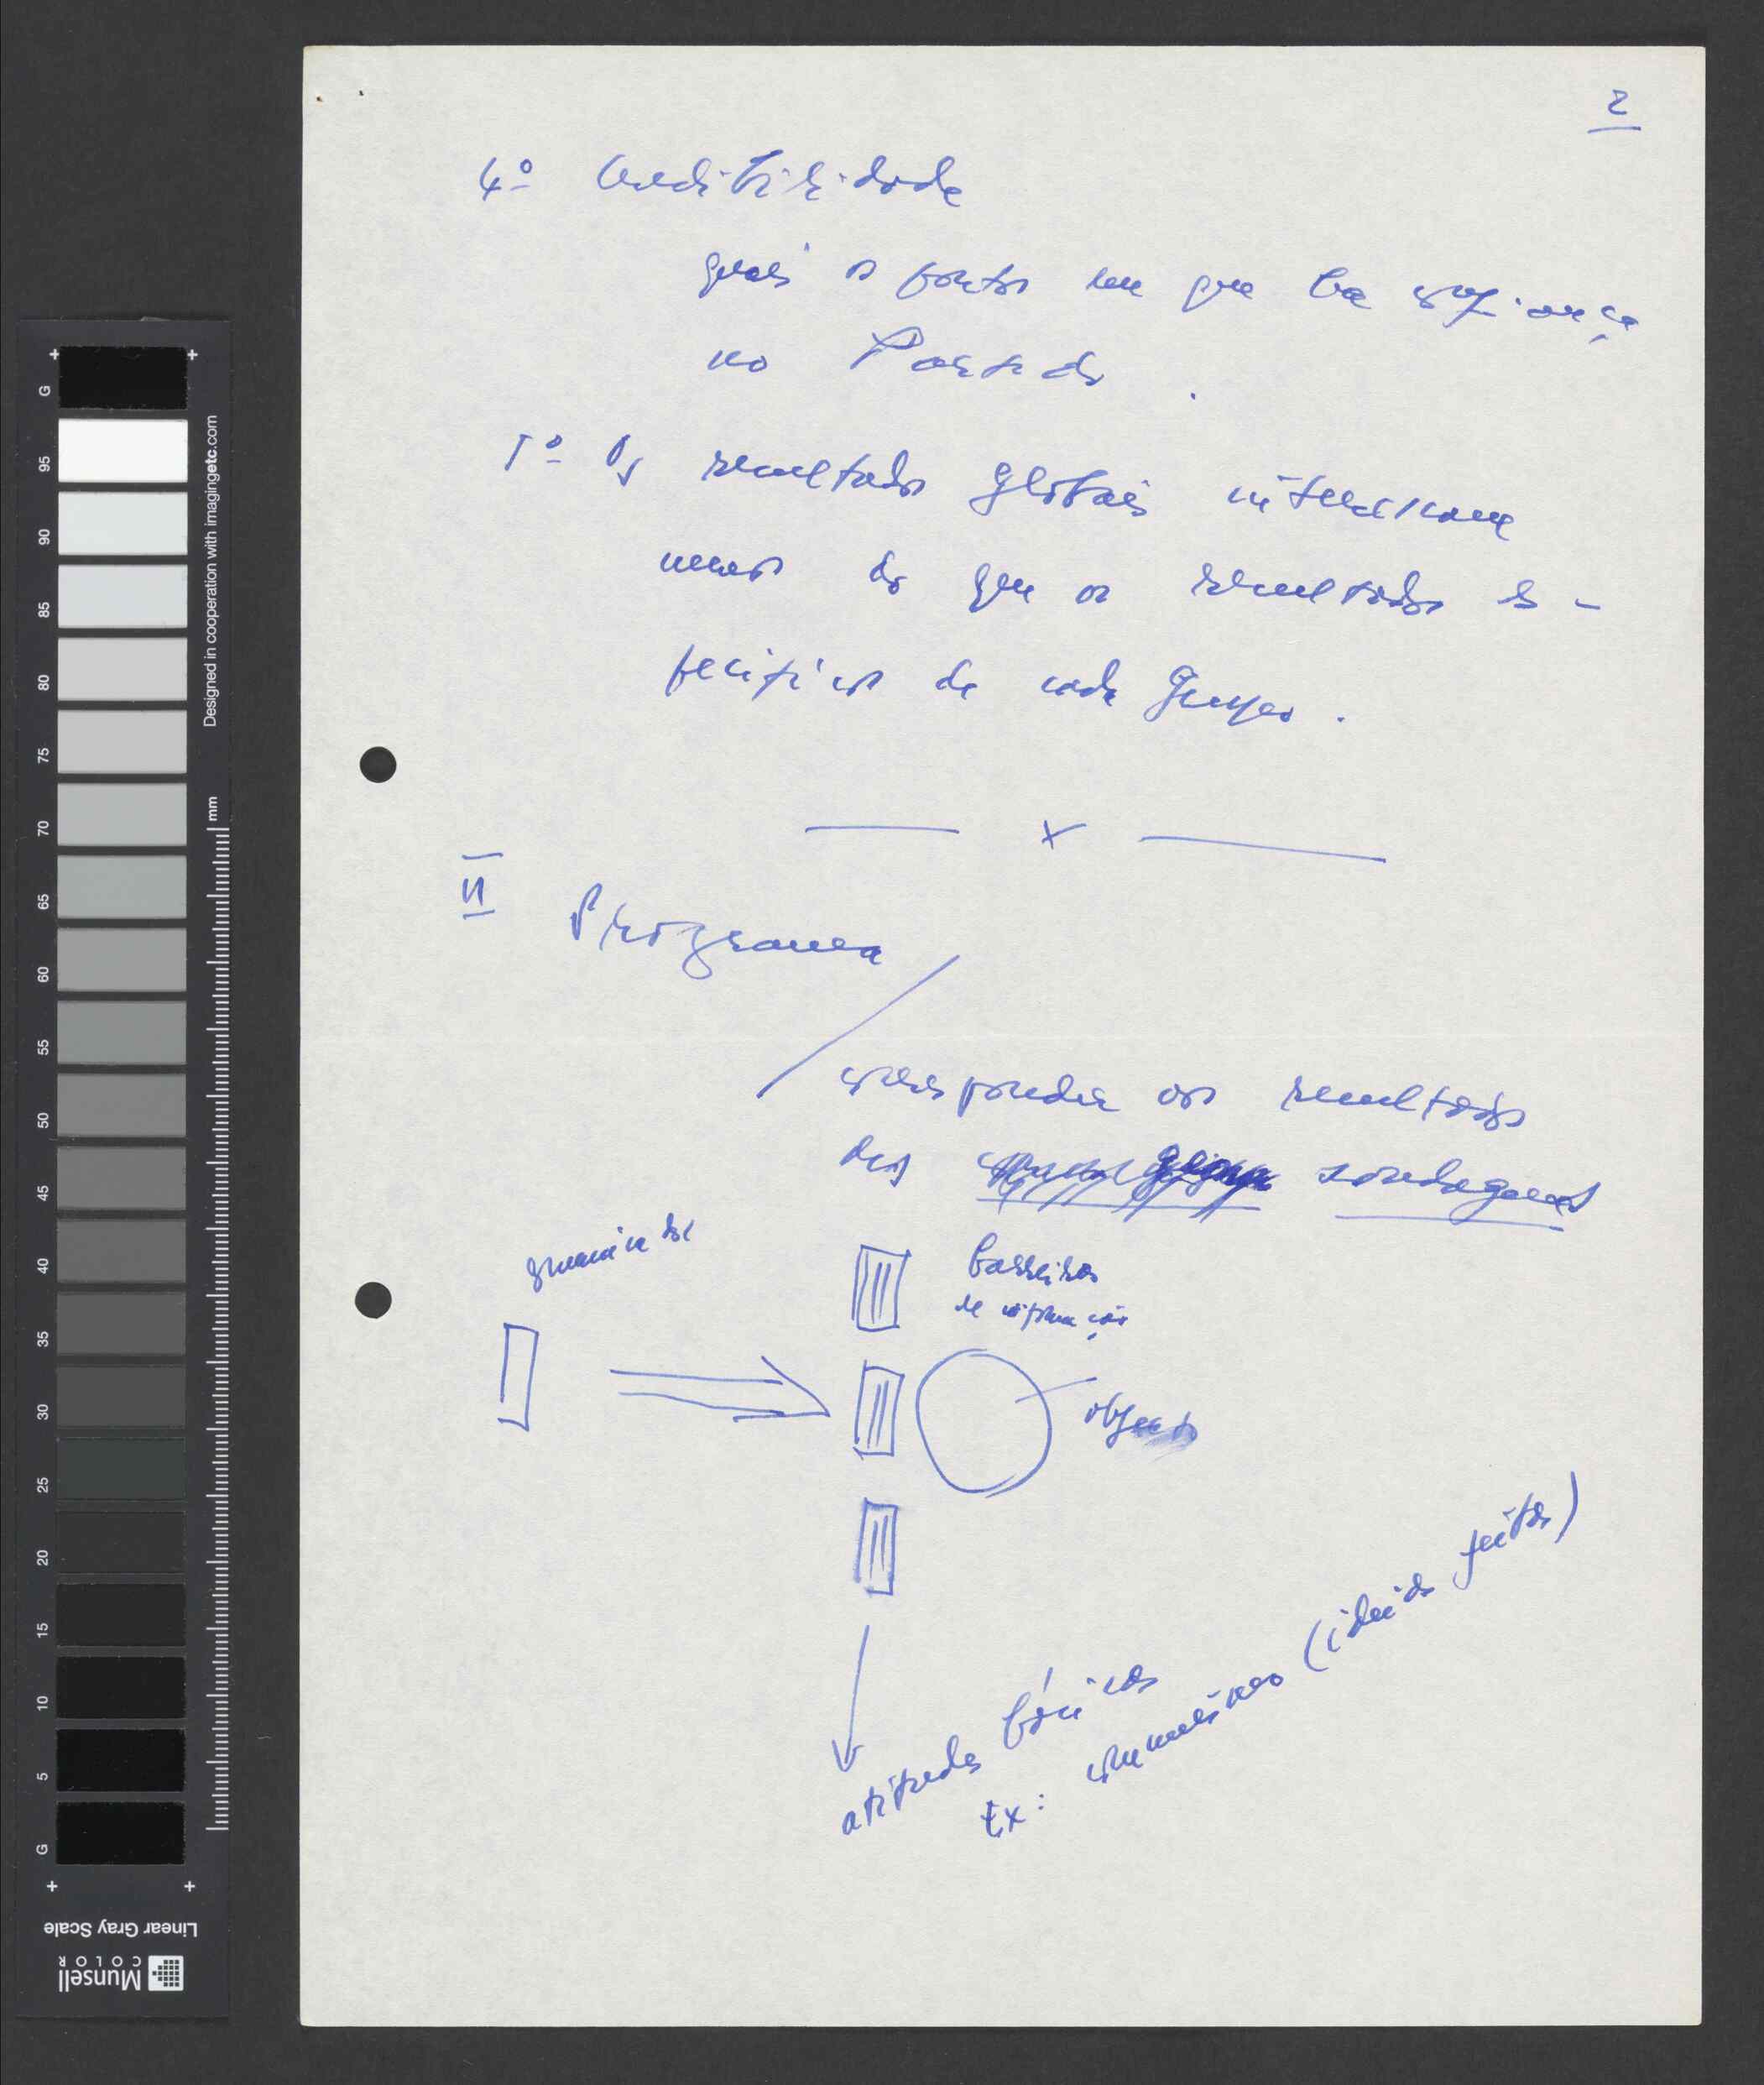 2
4º Credibilidade
quais os pontos em que ha confiança
no Partido.
5º Os resultados globais interessam
menos do que os resultados es-
pecificos de cada Grupo.
x
II Programa
corresponder aos resultados
das sondagens
barreiras
de informação
objecto
atitudes básicas
Ex: comunismo (ideias feitas)
G
95
90
85
80
75
70
65
60
55
50
45
40
35
30
25
20
15
10
5
G
mm
Designed in cooperation with imagingetc.com
Linear Gray Scale
Munsell
COLOR